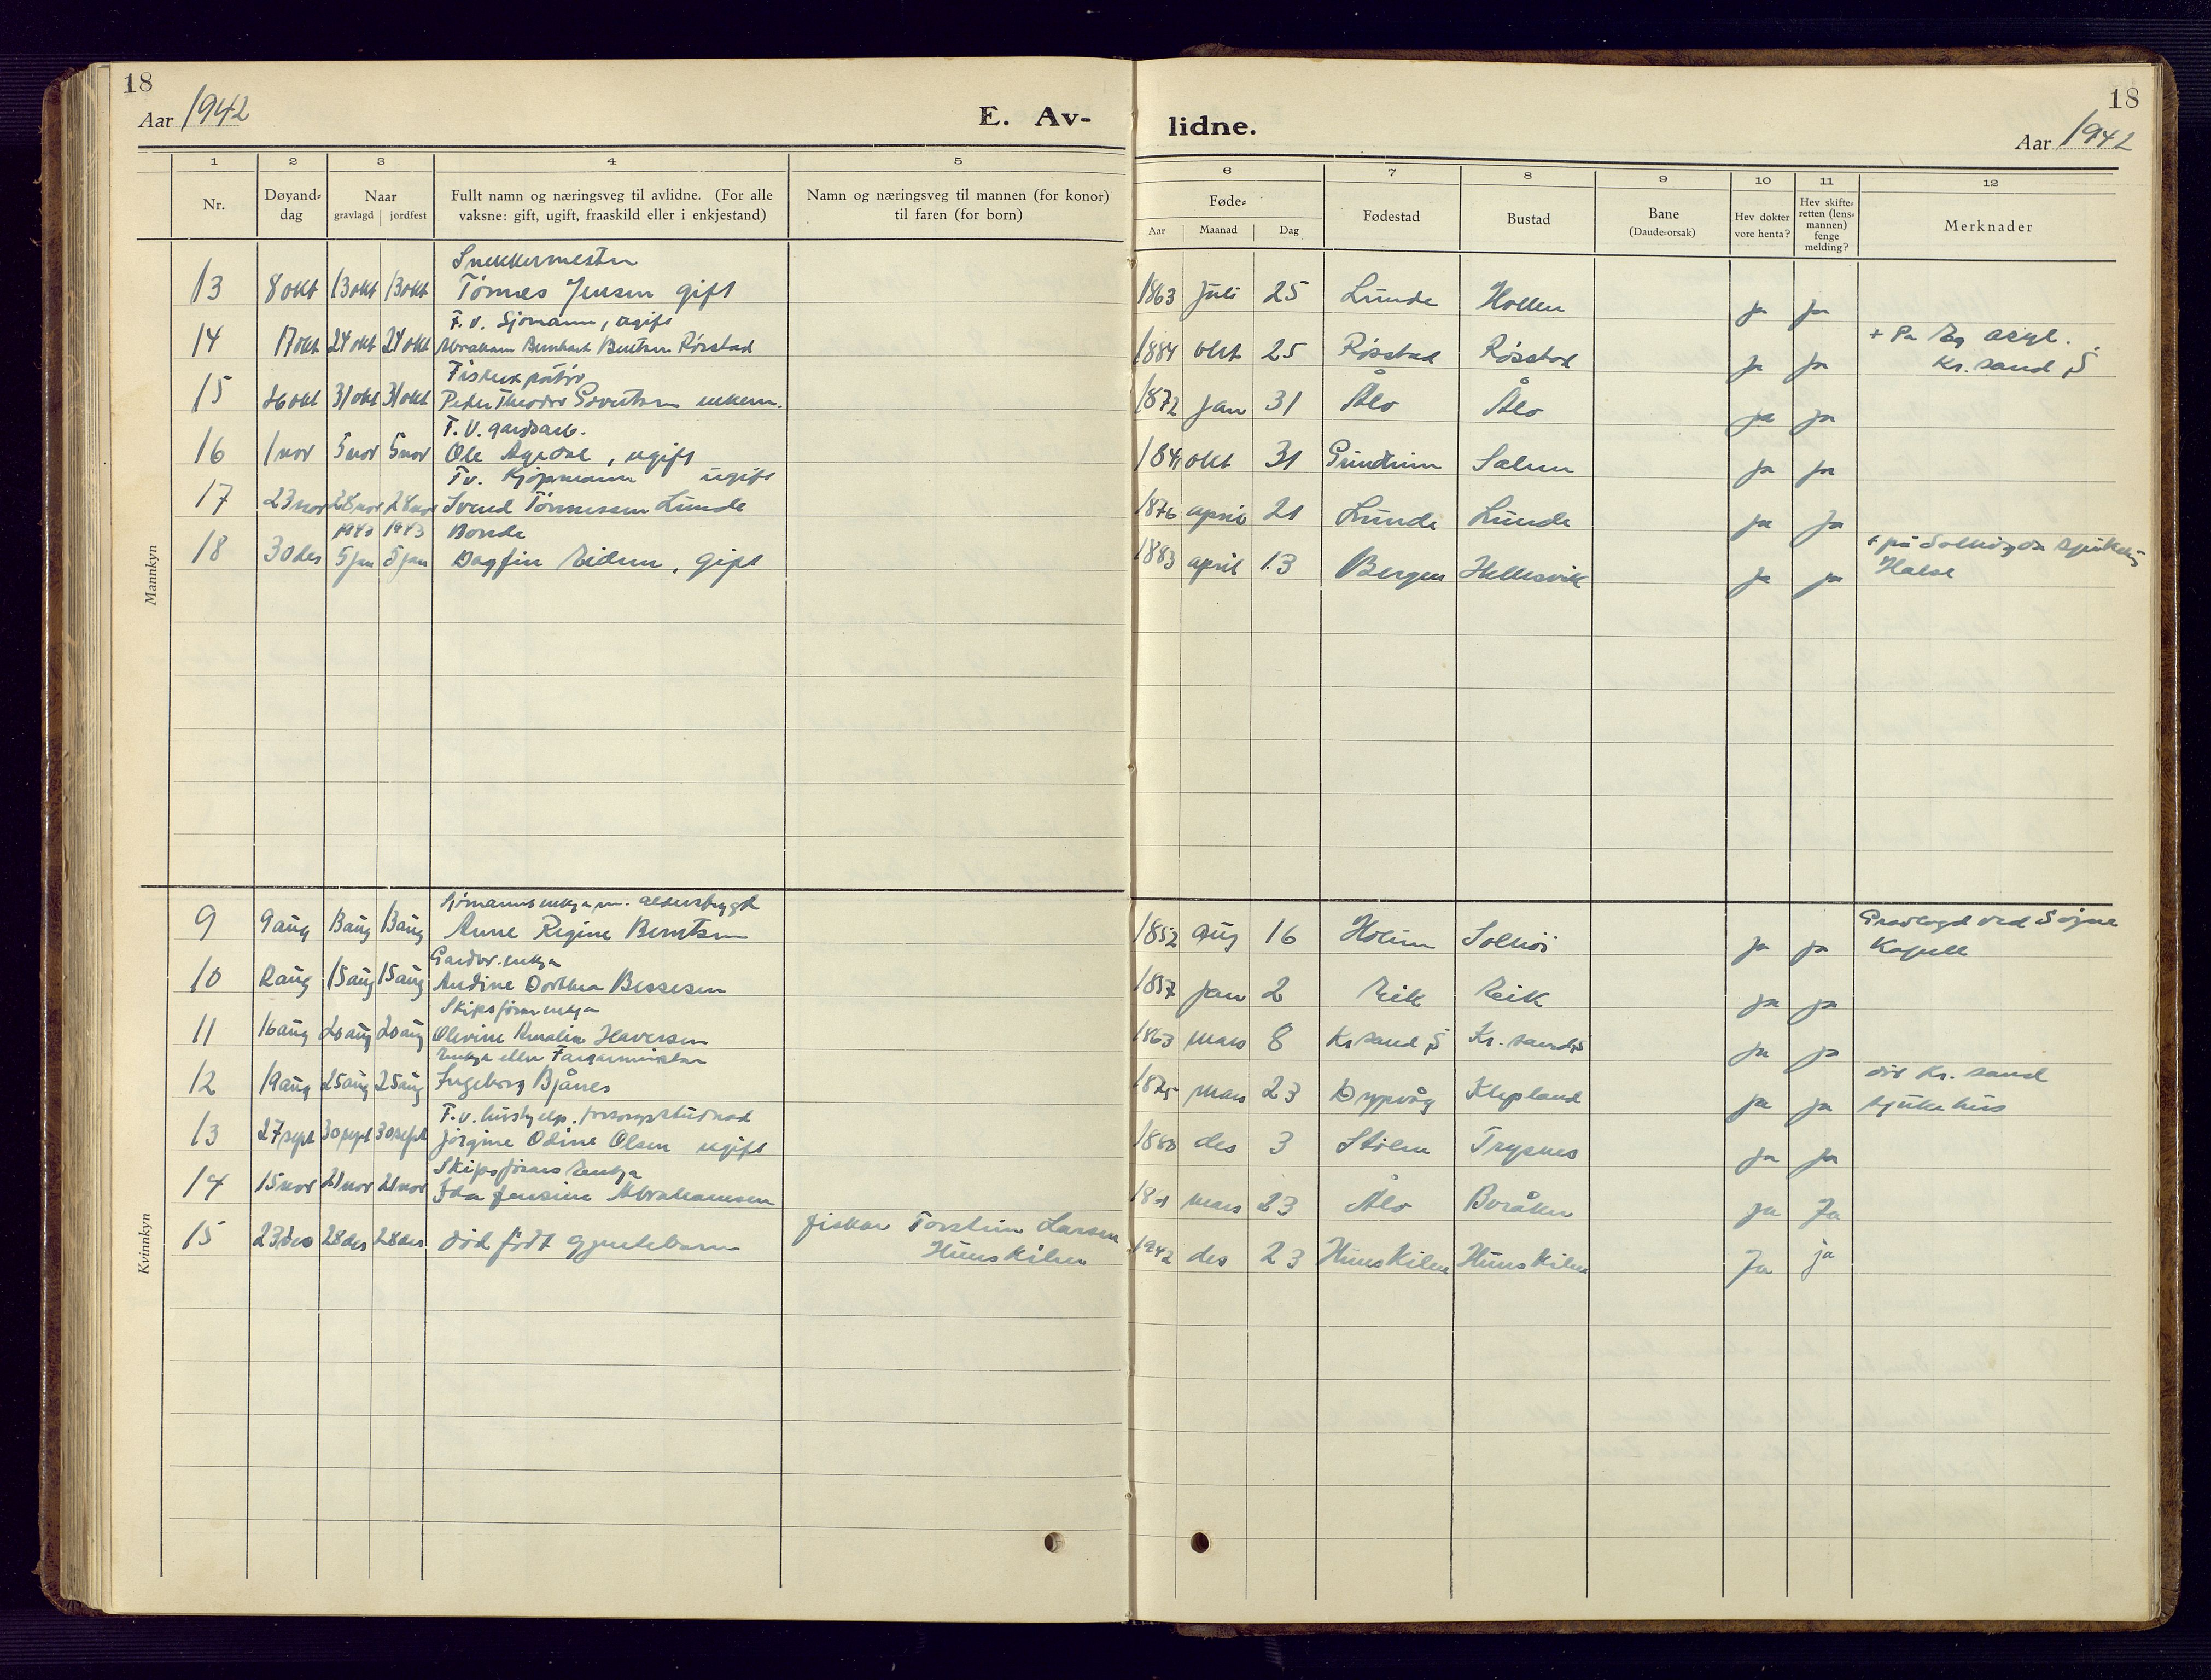 18
Aar 1942
E. Av-
lidne.
18
Aar 1942
1 2 3 4 5 6 7 8 9 10 11 12
Nr.
Døyand-dag
Naar
gravlagd | jordfest
Fullt namn og næringsveg til avlidne. (For alle
vaksne: gift, ugift, fraaskild eller i enkjestand)
Namn og næringsveg til mannen (for konor)
til faren (for born)
Føde-
Aar Maanad Dag
Fødestad
Bustad
Bane
(Daude-orsak)
Hev dokter
vore henta?
Hev skifte-
retten (lens-
mannen)
fenge
melding?
Merknader
Mannkyn
Snekkermester
13 8 okt 13 okt 13 okt Tønnes Jensen gift 1863 juli 25 Lunde Hollen ja ja
F.v. Sjømann, ugift
14 17 okt 24 okt 24 okt Abraham Bernhard Berntsen Røsstad 1884 okt 25 Røsstad Røsstad ja ja + På Eg asyl.
Kr. sand S
15 26 okt 31 okt 31 okt Peder Theodor enkem. 1872 jan 31 Ålo Ålo ja ja
F.V. gardsarb.
16 1 nov 5 nov 5 nov Ole Agedal, ugift okt 31 Grindheim ja ja
Fv. Kjøpmann ugift
17 23 nov 28 nov 28 nov Svend Tønnessen Lunde 1876 april 21 Lunde Lunde ja ja
1943 1943 Bonde
18 30 des 5 jan 5 jan Dagfin Eidem, gift 1883 april 13 Bergen Hellesvik ja ja + på sjukehus
Halse
Kvinnkyn
Sjømannsenkja m. alderstrygd
9 9 aug 13 aug 13 aug Anne Regine Berntsen 1852 aug 16 Holum Solhöi ja ja Gravlagd ved Søgne
Kapell
Gardbr. enkja
10 aug 15 aug 15 aug Andine Dorthea Bessesen 1857 jan 2 Eik Eik ja ja
Skipsførarenkja
11 16 aug 20 aug 20 aug Olevine Amalia Haversen 1863 mars 8 Kr sand S Kr. sand S ja ja
Enkja etter Fargarmeister
12 19 aug 25 aug 25 aug Ingeborg Bjånes mars 23 Dypvåg Klepland ja ja død Kr. sand
sjukehus
F.v. hushjelp. forsorgsstudnad
13 27 sept 30 sept 30 sept Jörgine Odine Olsen ugift 1880 des 3 Stölen Trysnes ja ja
Skipsførars Enkja
14 15 nov 21 nov 21 nov Ida Jensine Abrahamsen mars 23 Ålo Boråker ja Ja
15 23 des 28 des 28 des død født gjentebarn fiskar Torstein Larsen
Hunskilen 1942 des 23 Hunskilen Hunskilen Ja ja